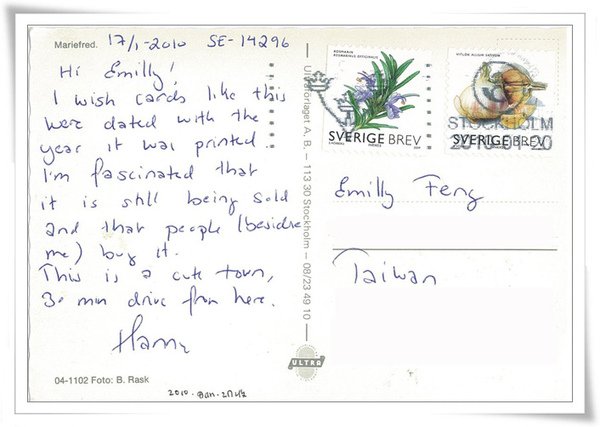 Mariefred. 17/1-2010 SE-14296
Hi Emilly!
I wish cards like this
were dated with the
year it was printed.
I'm fascinated that
it is still being sold
and that people (beside
me) buy it.
This is a cute town,
30 min drive from here.
04-1102 Foto: B. Rask
Ultraförlaget A. B. – 113 30 Stockholm – 08/23 49 10
ULTRA
ROSMARIN
ROSMARINUS OFFICINALIS
SVERIGE BREV
VITLÖK ALLIUM SATIVUM
SVERIGE BREV
STOCKHOLM
2010-01-20
Emilly Feng
Taiwan